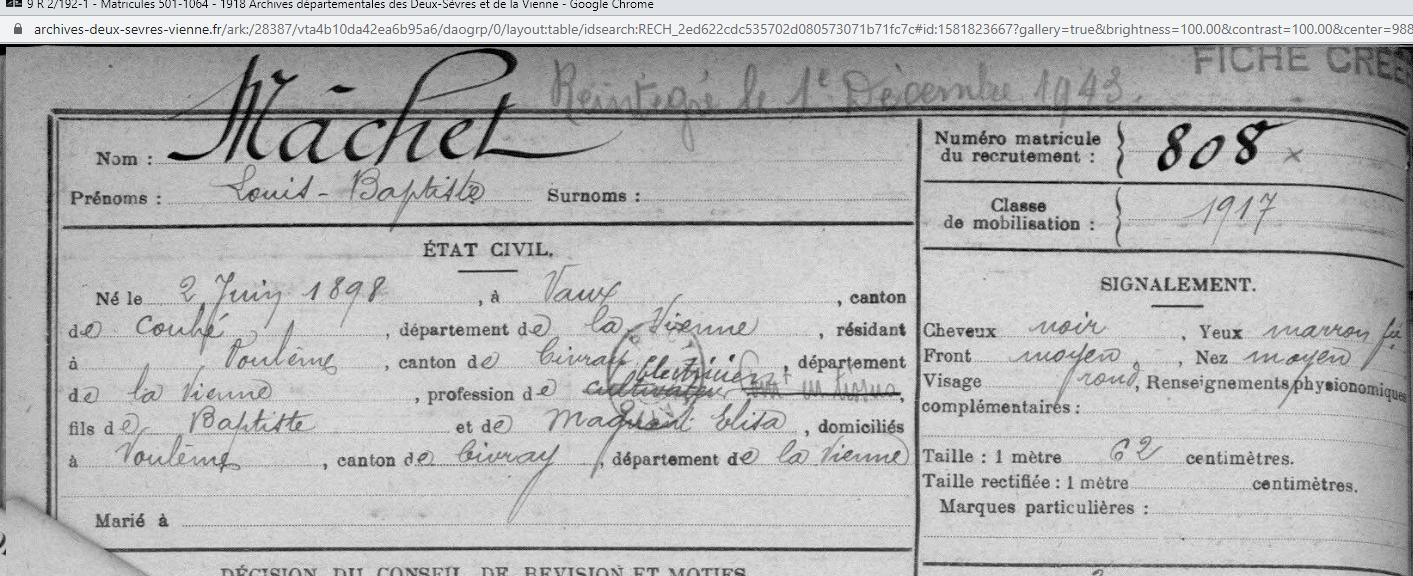 9 R 2/192-1 - Matricules 501-1064 - 1918 Archives départementales des Deux-Sèvres et de la Vienne - Google Chrome
archives-deux-sevres-vienne.fr/ark:/28387/vta4b10da42ea6b95a6/daogrp/0/layout:table/idsearch:RECH_2ed622cdc535702d080573071b71fc7c#id:1581823667?gallery=true&brightness=100.00&contrast=100.00&center=988
FICHE CRÉÉ
Réintégré le 1e Décembre 1943.
Nom : Mâchet
Prénoms : Louis-Baptiste Surnoms :
Numéro matricule du recrutement : 808 x
Classe de mobilisation : 1917
ÉTAT CIVIL.
Né le 2 Juin 1898, à Vaux, canton
de Couhé, département de la Vienne, résidant
à Voulême, canton de Civray, département
électricien
de la Vienne, profession de cultivateur
fils de Baptiste et de Elisa, domiciliés
à Voulême, canton de Civray, département de la Vienne
Marié à
SIGNALEMENT.
Cheveux noir, Yeux marron
Front moyen, Nez moyen
Visage rond, Renseignements physionomiques
complémentaires :
Taille : 1 mètre 62 centimètres.
Taille rectifiée : 1 mètre centimètres.
Marques particulières :
DÉCISION DU CONSEIL DE REVISION ET MOTIFS